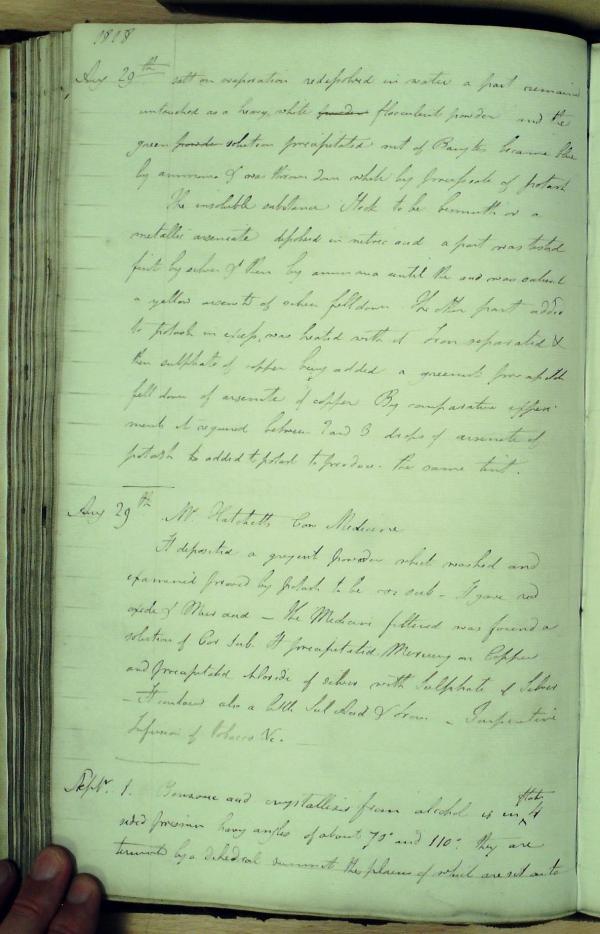 1818
Aug 29th salt on evaporation redissolved in water a part remained
untouched as a heavy white powder flocculent powder and the
green powder solution precipitated mt of Barytes became blue
by ammonia & was thrown down white by prussiate of potash
The insoluble substance I took to be bismuth or a
metallic arseniate dissolved in nitric acid a part was tested
first by silver & then by ammonia until the acid was
a yellow arsenite of silver fell down The other part added
to potash in excess, was heated with it Iron separated &
then sulphate of copper being added a greenish precipitate
fell down of arsenite of copper By comparative experi-
ments it required between 2 and 3 drops of arsenite of
potash to added to potash to produce the same tint.
Aug 29th Mr. Hatchetts Cow Medicine
It deposited a greyish powder which washed and
examined proved by potash to be cor sub - It gave red
oxide & Mur acid - The Medicine filtered was found a
solution of Cor Sub. It precipitated Mercury on Copper
and precipitated chloride of silver with Sulphate of Silver
- It contains also a little Sul Acid & Iron -
Infusion of Tobacco &c.
Septr. 1. acid crystallizes from alcohol is in flat 4
sided prisms having angles of about 70° and 110° they are
termind by a dihedral summit the planes of which are set on to